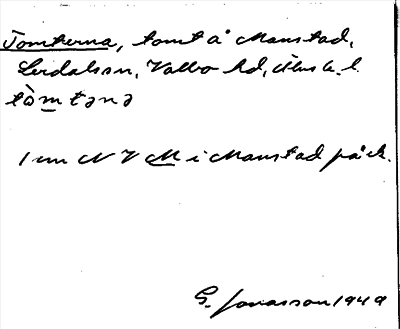 Tomterna, tomt å Manstad,
Lerdalssn, Valbo hd, Älvsb. l.
tò̀mtənə
1 cm N V M i Manstad på ek.
G. Jonasson 1949